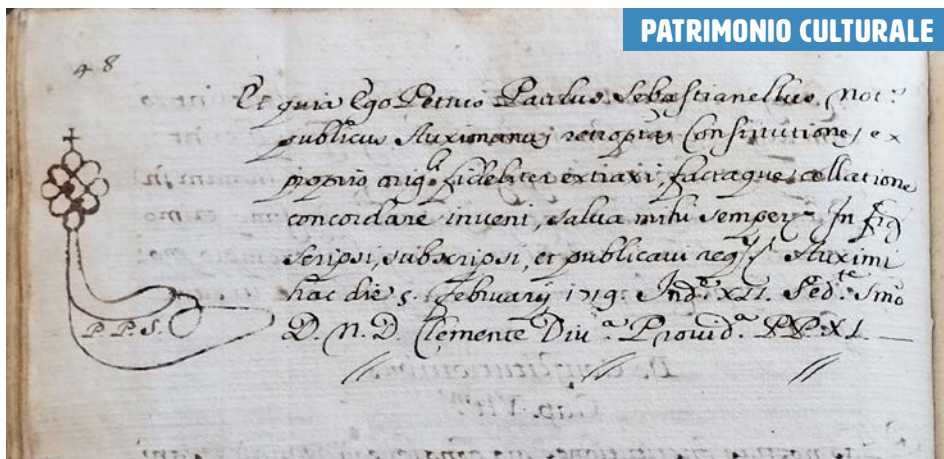 PATRIMONIO CULTURALE
48
Et quia Ego Petrus Paulus Sebastianellus Not:
publicus Auximanus retroptas Constitutiones ex
proprio orig. fideliter extraxi, factaque collatione
concordare inveni, salva mihi semper In fid
scripsi, subscripsi, et publicavi Auximi
hac die 5. Februarij 1719. Ind.e XII. Sed.te Smo
D. N. D. Clemente Div.a Provid.a PP. XI.
P. P. S.